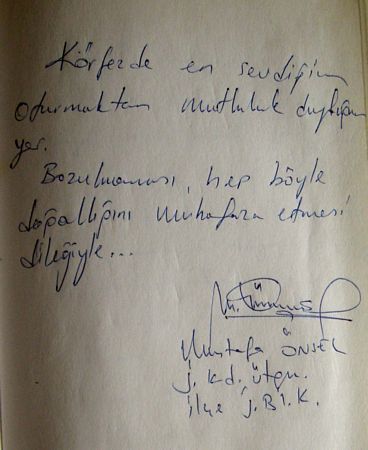 Körfezde en sevdiğim
oturmaktan mutluluk duyduğum
yer.
Bozulmaması, hep böyle
doğallığını muhafaza etmesi
dileğiyle...
Mustafa ÖNSEL
j. kd. ütğm.
ilçe j. Bl. K.